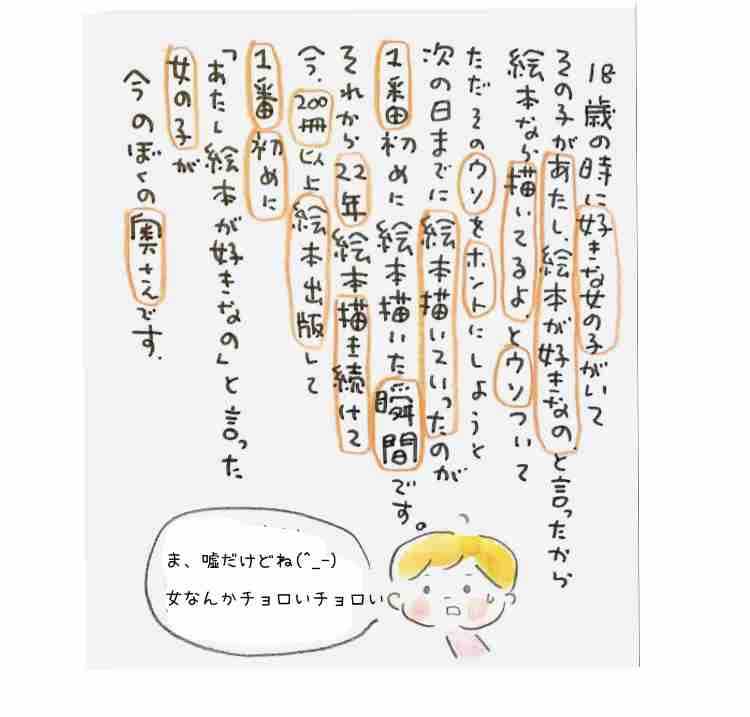 18歳の時に好きな女の子がいて
その子があたし、絵本が好きなの、と言ったから
絵本なら描いてるよ、とウソついて
ただそのウソをホントにしようと
次の日までに絵本描いていったのが
1番初めに絵本描いた瞬間です。
それから22年絵本描き続けて
今、200冊以上絵本出版して
1番初めに
「あたし絵本が好きなの」と言った
女の子が
今のぼくの奥さんです。
ま、嘘だけどね(^_-)
女なんかチョロいチョロい